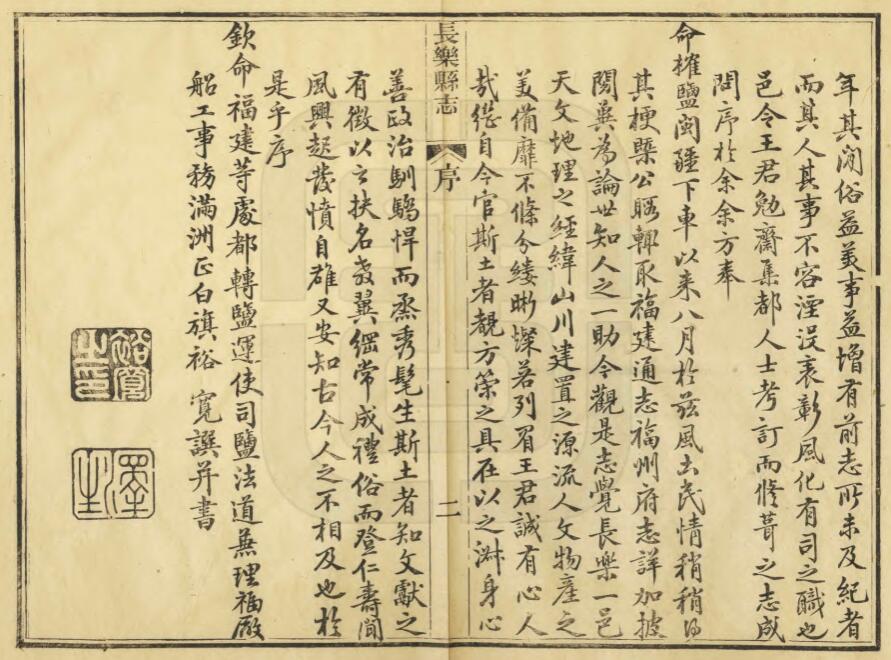 年其間俗益美事益增有前志所未及紀者
而其人其事不容湮沒表彰風化有司之職也
邑令王君勉齋集都人士考訂而修葺之志成
問序於余余方奉
命榷鹽閩疆下車以来八月於茲風土民情稍稍得
其梗槩公暇輒取福建通志福州府志詳加披
閱冀為論世知人之一助今觀是志覺長樂一邑
天文地理之經緯山川建置之源流人文物產之
美備靡不條分縷晰燦若列眉王君誠有心人
哉繼自今官斯土者覩方策之具在以之淑身心
長樂縣志
序
二
善政治馴驕悍而烝秀髦生斯土者知文獻之
有徵以之扶名教翼綱常成禮俗而登仁壽聞
風興起發憤自雄又安知古今人之不相及也於
是乎序
欽命福建等處都轉鹽運使司鹽法道兼理福廠
船工事務滿洲正白旗裕 寬譔并書
裕寬之印